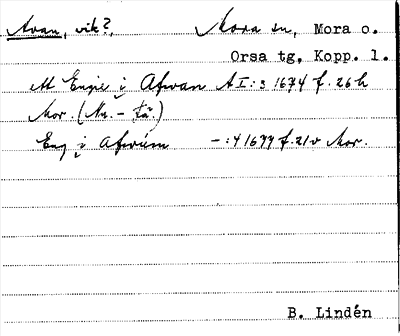 Avan, vik?, Mora sn, Mora o.
Orsa tg, Kopp. l.
Engie i Afwan A I:3 1674 f. 26 h
Mor.
Eng i - :4 1699 f. 21 v Mor.
B. Lindén